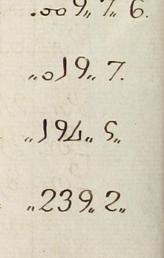 .009,, 7,, 6.
,,019,, 7.
,,194,, 5,,
,,239,, 2,,